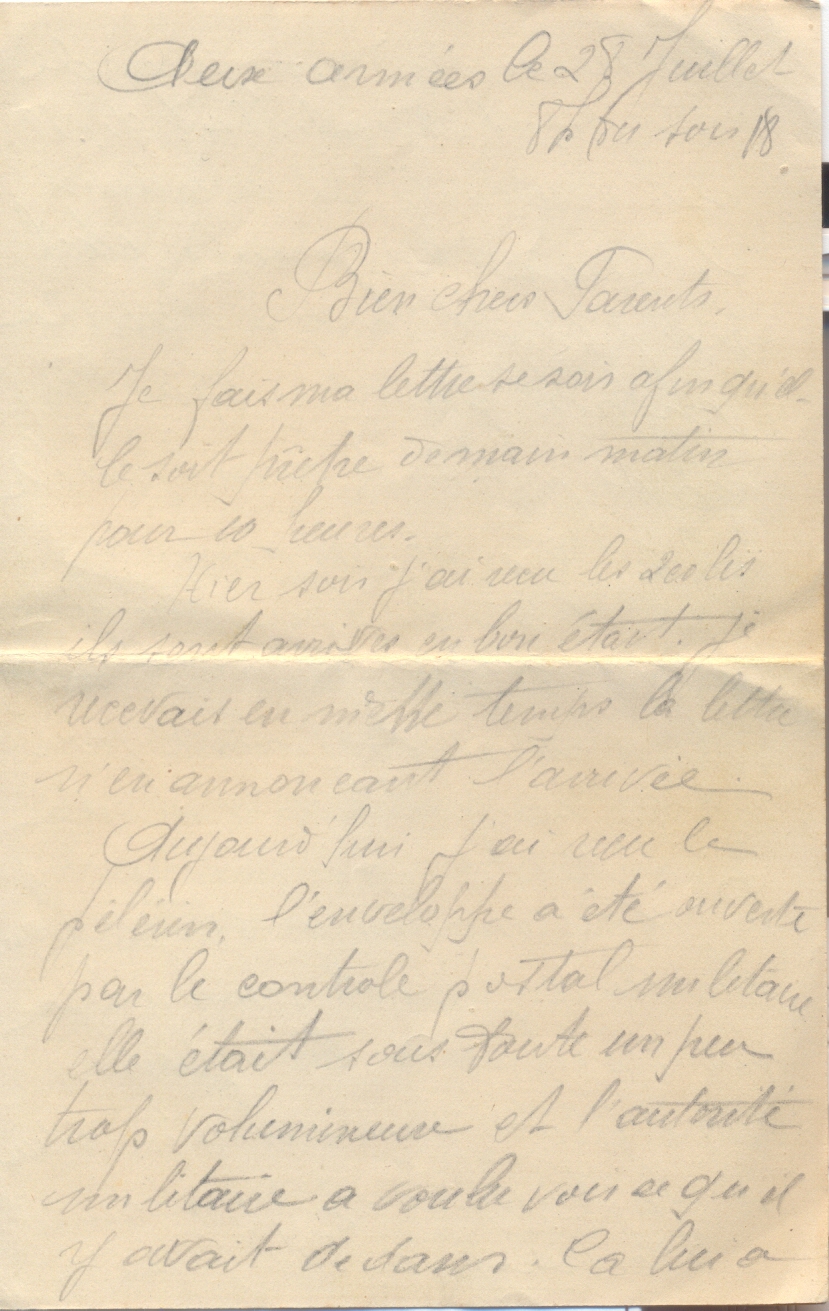 Aux armées le 28 Juillet
8h du soir 18
Bien chers Parents,
Je fais ma lettre se soir afin qu'el-
le soit prête demain matin
pour 10 heures.
Hier soir j'ai reçu les 2 colis
ils sont arrivés en bon état. Je
recevais en même temps la lettre
m'en annonçant l'arrivée.
Aujourd'hui j'ai reçu le
pélerin, l'enveloppe a été ouverte
par le controle postal militaire
elle était sans doute un peu
trop volumineuse et l'autorité
militaire a voulu voir ce qu'il
y avait dedans. Ca lui a